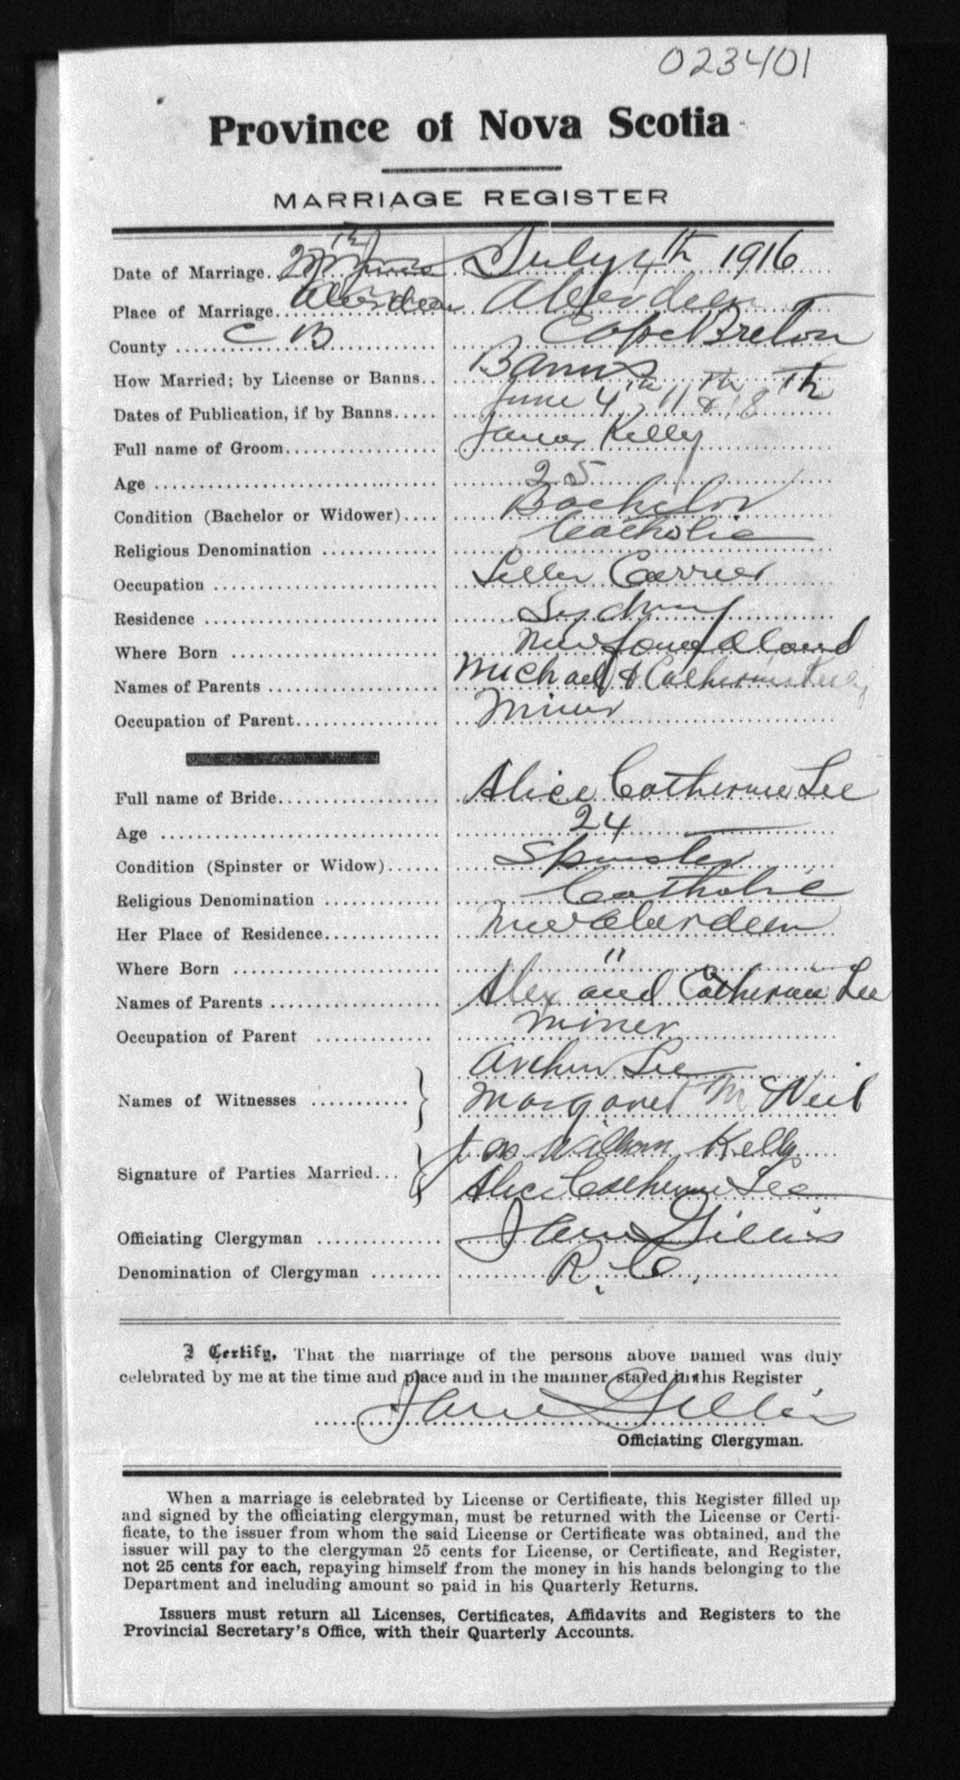 023401
Province of Nova Scotia
MARRIAGE REGISTER
Date of Marriage. July 4th 1916
Place of Marriage Aberdeen Aberdeen
County C B Cape Breton
How Married; by License or Banns.. Banns
Dates of Publication, if by Banns..... June 4th 11th & 18th
Full name of Groom James Kelly
Age 25
Condition (Bachelor or Widower).... Bachelor
Religious Denomination Catholic
Occupation Carrier
Residence Sydney
Where Born Newfoundland
Names of Parents Michael & Catherine Kelly
Occupation of Parent Miner
Full name of Bride Alice Catherine Lee
Age 24
Condition (Spinster or Widow)...... Spinster
Religious Denomination Catholic
Her Place of Residence New Aberdeen
Where Born "
Names of Parents Alex and Catherine Lee
Occupation of Parent Miner
Names of Witnesses Lee
Margaret McNeil
Signature of Parties Married... Jas William Kelly
Alice Catherine Lee
Officiating Clergyman Gillis
Denomination of Clergyman R. C.
I Certify, That the marriage of the persons above named was duly
celebrated by me at the time and place and in the manner stated in this Register
Gillis
Officiating Clergyman.
When a marriage is celebrated by License or Certificate, this Register filled up
and signed by the officiating clergyman, must be returned with the License or Certi-
ficate, to the issuer from whom the said License or Certificate was obtained, and the
issuer will pay to the clergyman 25 cents for License, or Certificate, and Register,
not 25 cents for each, repaying himself from the money in his hands belonging to the
Department and including amount so paid in his Quarterly Returns.
Issuers must return all Licenses, Certificates, Affidavits and Registers to the
Provincial Secretary's Office, with their Quarterly Accounts.